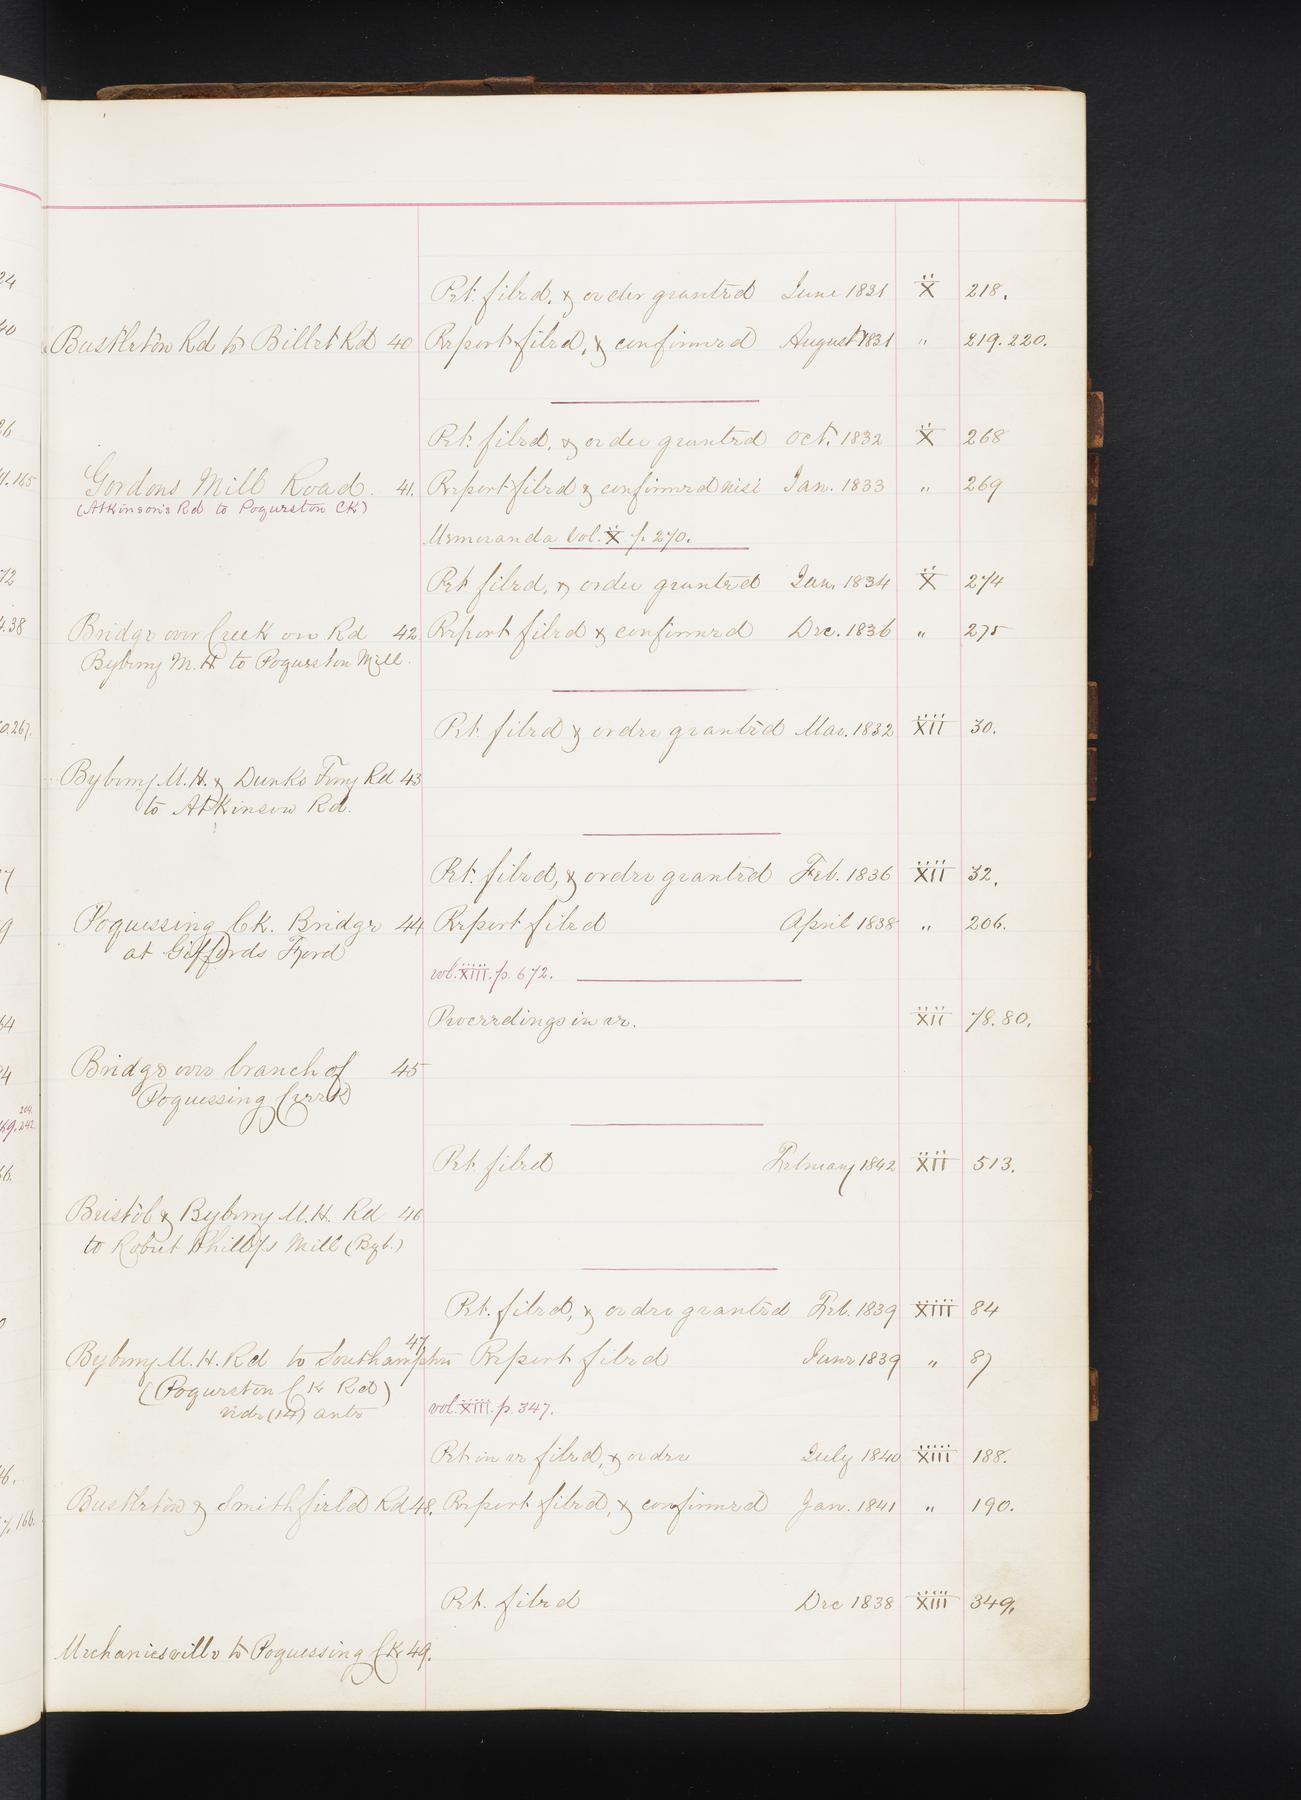 Pet. filed, & order granted June 1831 X 218.
Bustleton Rd to Billet Rd 40 Report filed, & confirmed August 1831 " 219. 220.
Pet. filed, & order granted Oct. 1832 X 268
Gordons Mill Road. 41. Report filed & confirmed nisi Jan. 1833 " 269
(Atkinson's Rd to Poqueston Ck)
Memoranda Vol. X p. 270.
Pet. filed, & order granted Jan. 1834 X 274
Bridge over Creek on Rd 42 Report filed & confirmed Dec. 1836 " 275
Byberry M. H to Poqueston Mill.
Pet. filed & order granted Mar. 1832 XII 30.
Byberry M. H. & Dunks Ferry Rd 43
to Atkinson Rd.
Pet. filed, & order granted Feb. 1836 XII 32.
Poquessing Ck. Bridge 44 Report filed April 1838 " 206.
at Giffords Fjord
vol. XIII. p. 672.
Proceedings in re. XII 78. 80.
Bridge over branch of 45
Poquessing Creek
Pet. filed February 1842 XII 513.
Bristol & Byberry M. H. Rd 46
to Robert Phillips Mill (Byb.)
Pet. filed, & order granted Feb. 1839 XIII 84
Byberry M. H. Rd to Southampton 47. Report filed June 1839 " 87
(Poqueston Ck Rd)
vide (14) ante vol. XIII. p. 347.
Pet in re filed, & order July 1840 XIII 188.
Bustleton & Smithfield Rd 48. Report filed, & confirmed Jan. 1841 " 190.
Pet. filed Dec 1838 XIII 349.
Mechanicsville to Poquessing Ck 49.